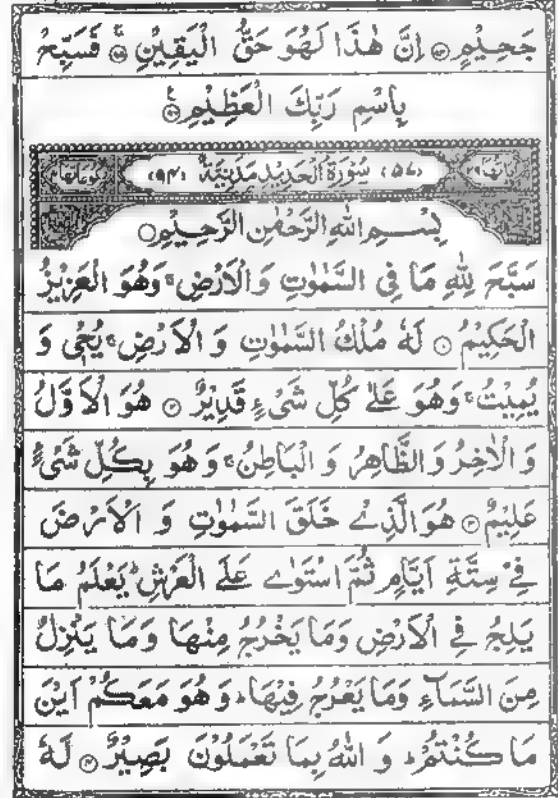 جَحِيْمٍ ۝ اِنَّ هٰذَا لَهُوَ حَقُّ الْيَقِيْنِ ۝ فَسَبِّحْ
بِاسْمِ رَبِّكَ الْعَظِيْمِ ۝
(٥٧) سُوْرَةُ الْحَدِيْدِ مَدَنِيَّةٌ (٩٤)
بِسْمِ اللّٰهِ الرَّحْمٰنِ الرَّحِيْمِ ۝
سَبَّحَ لِلّٰهِ مَا فِي السَّمٰوٰتِ وَالْاَرْضِ ۚ وَهُوَ الْعَزِيْزُ
الْحَكِيْمُ ۝ لَهٗ مُلْكُ السَّمٰوٰتِ وَ الْاَرْضِ ۚ يُحْيٖ وَ
يُمِيْتُ ۚ وَهُوَ عَلٰى كُلِّ شَىْءٍ قَدِيْرٌ ۝ هُوَ الْاَوَّلُ
وَ الْاٰخِرُ وَ الظَّاهِرُ وَ الْبَاطِنُ ۚ وَ هُوَ بِكُلِّ شَىْءٍ
عَلِيْمٌ ۝ هُوَ الَّذِيْ خَلَقَ السَّمٰوٰتِ وَ الْاَرْضَ
فِيْ سِتَّةِ اَيَّامٍ ثُمَّ اسْتَوٰى عَلَى الْعَرْشِ ؕ يَعْلَمُ مَا
يَلِجُ فِي الْاَرْضِ وَمَا يَخْرُجُ مِنْهَا وَمَا يَنْزِلُ
مِنَ السَّمَآءِ وَمَا يَعْرُجُ فِيْهَا ؕ وَ هُوَ مَعَكُمْ اَيْنَ
مَا كُنْتُمْ ؕ وَ اللّٰهُ بِمَا تَعْمَلُوْنَ بَصِيْرٌ ۝ لَهٗ